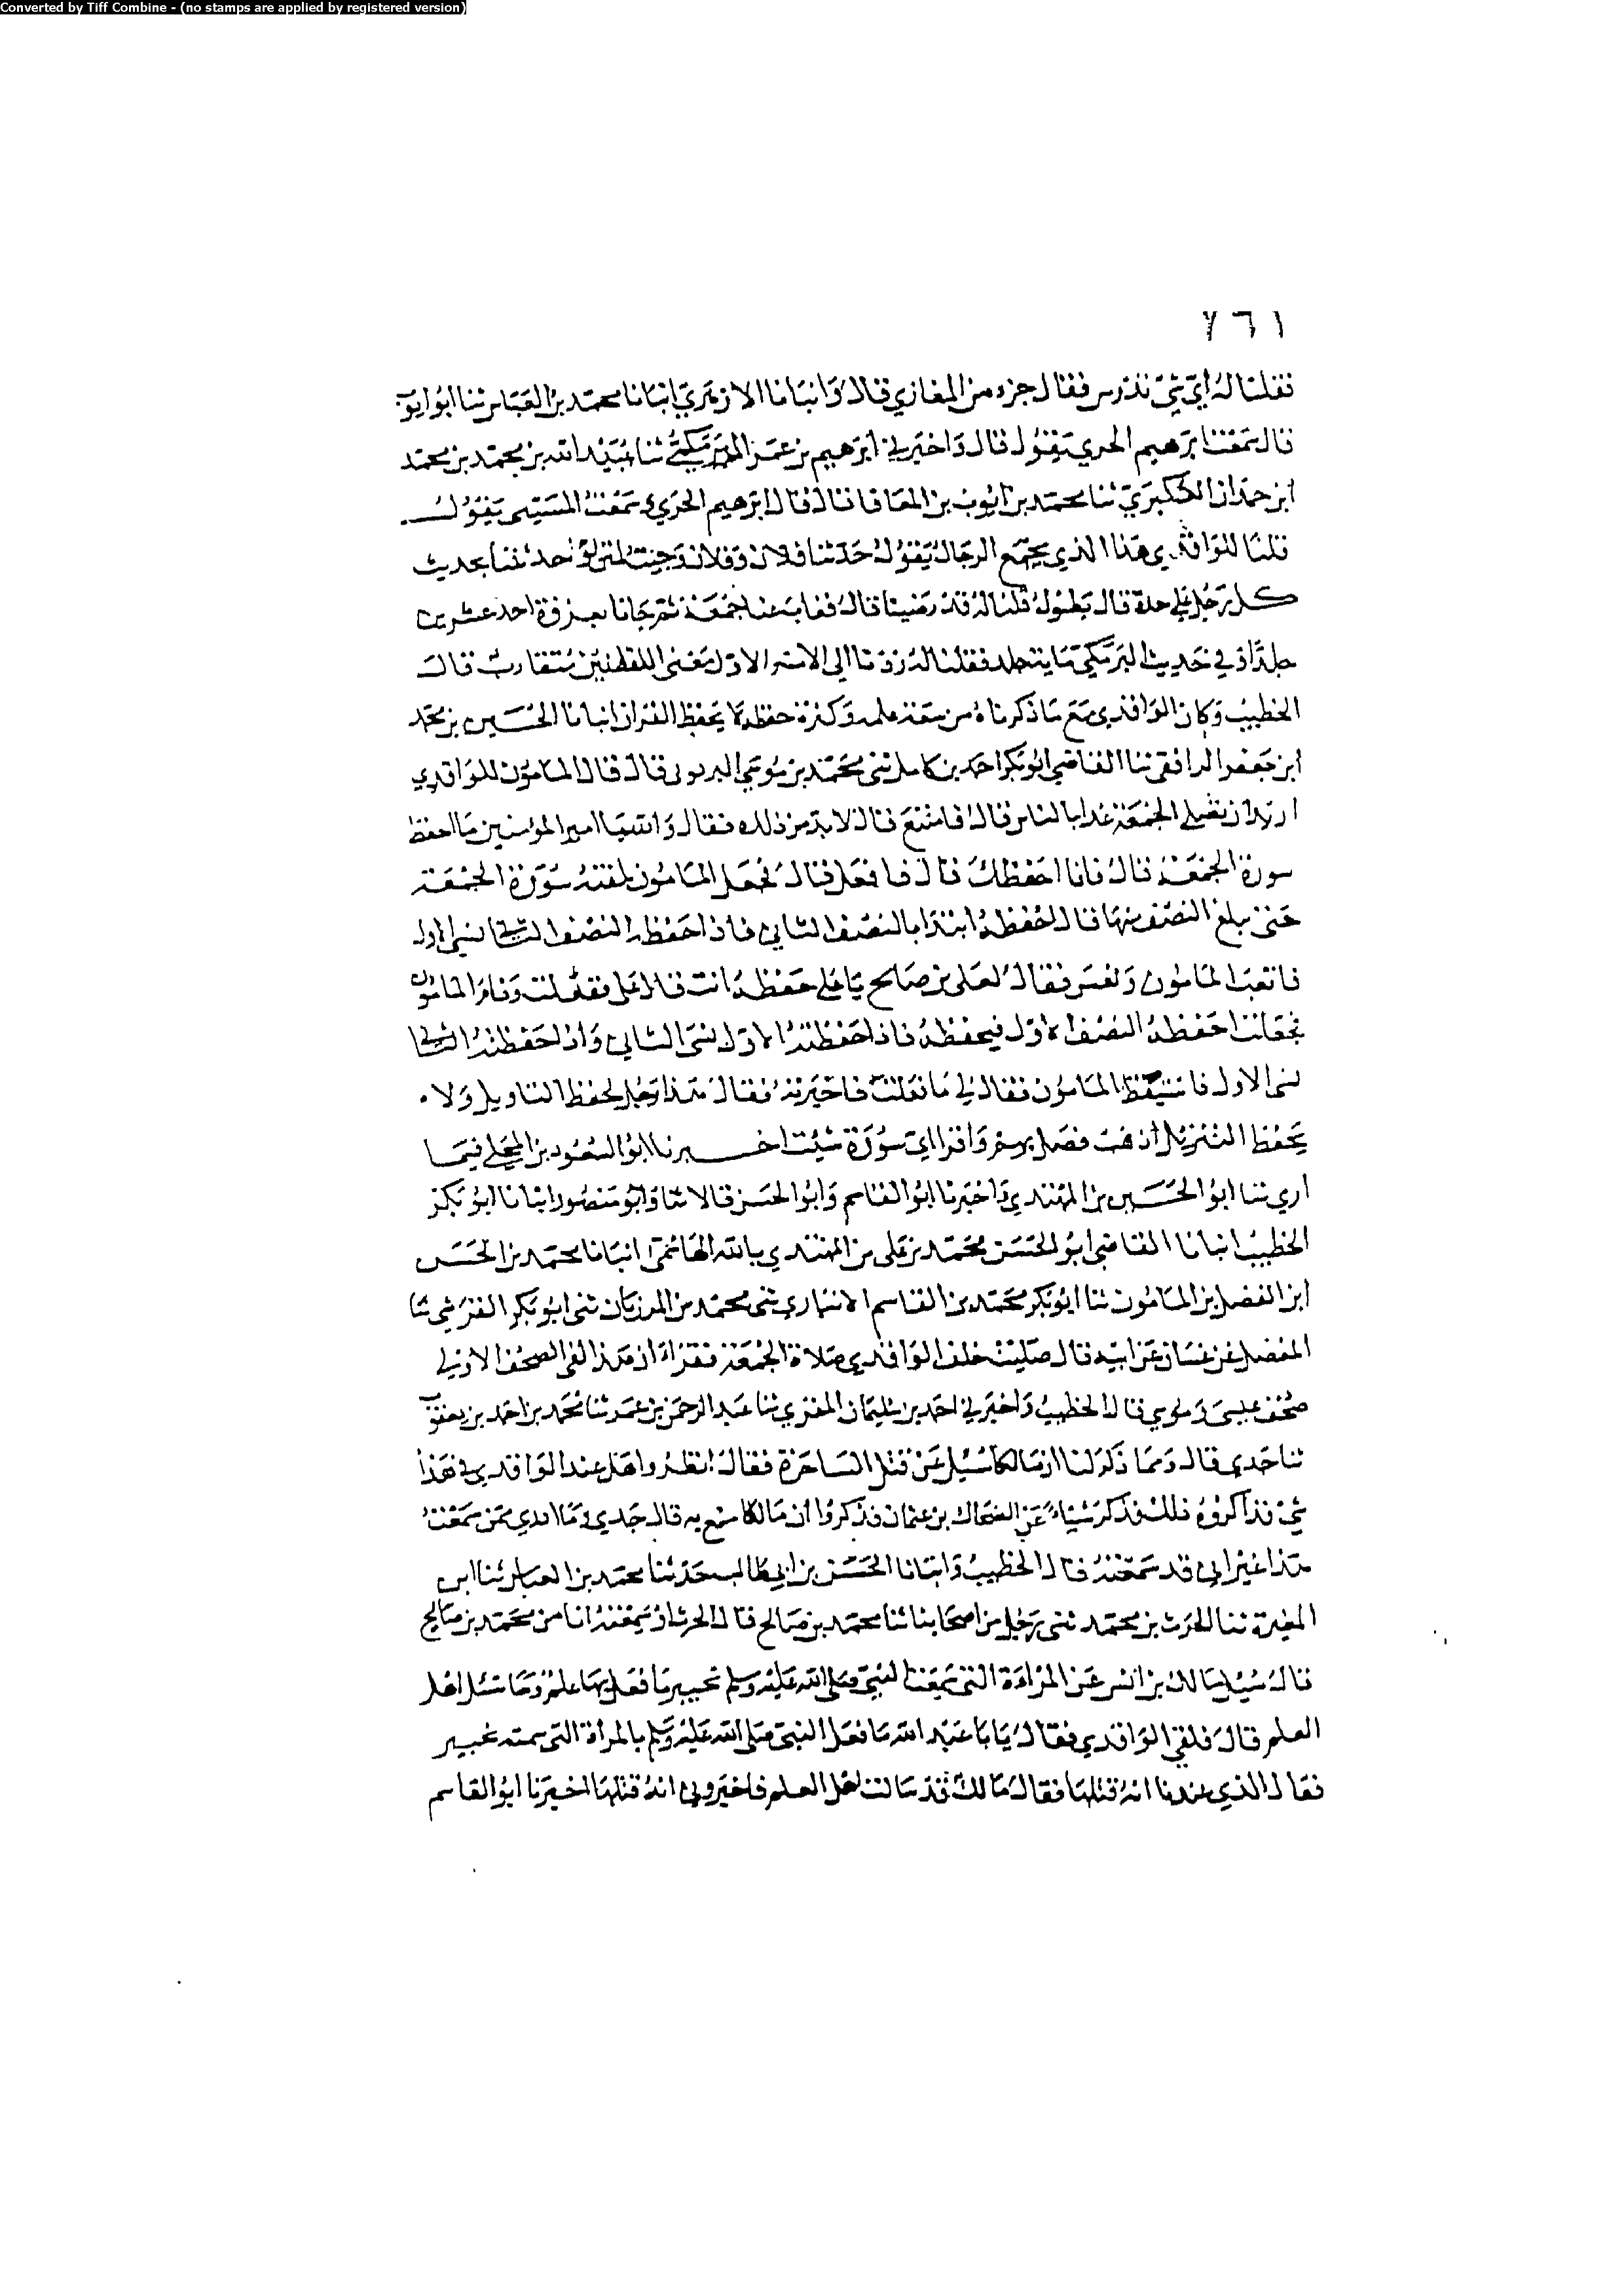 Converted by Tiff Combine - (no stamps are applied by registered version)
٧٦١
فقلنا له اي شي تدرس فقال جزء من المغازي قال وانبانا الازهري انبانا محمد بن العباس ثنا ابو ايوب
قال سمعت ابرهيم الحربي يقول قال واخبرني ابرهيم بن عمر البرمكي ثنا عبيد الله بن محمد بن محمد
ابن حمدان العكبري ثنا محمد بن ايوب بن المعافا قال قال ابرهيم الحربي سمعت المسيبي يقول
قلنا للواقدي هذا الذي يجمع الرجال يقول حدثنا فلان وفلان وجيت لمتن لو حدثتنا بحديث
كل رجل على حدة قال يطول قلنا له قد رضينا قال فغاب عنا جمعة ثم جانا بغرفة احد عشرين
جلدا وفي حديث البرمكي ماية جلد فقلنا له ردنا الى الامر الاول معنى اللفظين متقارب قال
الخطيب وكان الواقدي مع ما ذكرناه من سعة علمه وكثرة حفظه لا يحفظ القران انبانا الحسين بن محمد
ابن جعفر الرافقي ثنا القاضي ابو بكر احمد بن كامل ثني محمد بن موسى البربري قال قال المامون للواقدي
اريد ان تصلي الجمعة غدا بالناس قال فامتنع قال لا بد من ذلك فقال والله يا امير المؤمنين ما احفظ
سورة الجمعة قال فانا احفظك قال فافعل قال فجعل المامون يلقنه سورة الجمعة
حتى يبلغ النصف منها فاذا حفظه ابتدا بالنصف الثاني فاذا حفظ النصف الثاني نسي الاول
فاتعب المامون ونعس فقال لعلي بن صالح يا علي حفظه انت قال علي ففعلت ونام المامون
فجعلت احفظه النصف الاول فيحفظه فاذا حفظته الاول نسي الثاني واذا حفظته الثاني
نسي الاول فاستيقظ المامون فقال لي ما فعلت فاخبرته فقال هذا رجل يحفظ التاويل ولا
يحفظ التنزيل اذهب فصل بهم واقرا اي سورة شئت اخبرنا ابو السعود بن المجلي فيما
اري ثنا ابو الحسين بن المهتدي واخبرنا ابو القاسم وابو الحسن قالا ثنا وابو منصور انبانا ابو بكر
الخطيب انبانا القاضي ابو الحسين محمد بن علي بن المهتدي بالله الهاشمي انبانا محمد بن الحسن
ابن الفضل بن المامون ثنا ابو بكر محمد بن القاسم الانباري ثني محمد بن المرزبان ثني ابو بكر القرشي ثنا
المفضل بن غسان عن ابيه قال صليت خلف الواقدي صلاة الجمعة فقرا ان هذا لفي الصحف الاولى
صحف عيسى وموسى قال الخطيب واخبرني احمد بن سليمان المقري ثنا عبد الرحمن بن عمر ثنا محمد بن احمد بن يعقوب
ثنا جدي قال ومما ذكر لنا ان مالكا سئل عن قتل الساحرة فقال انظروا هل عند الواقدي في هذا
شي فذاكروه ذلك فذكر شياء عن الضحاك بن عثمان فذكروا ان مالكا قنع به قال جدي وما ادري ممن سمعت
هذا غير اني قد سمعته قال الخطيب وانبانا الحسن بن ابي طالب حدثنا محمد بن العباس ثنا ابن
المغيرة ثنا الحرث بن محمد ثني رجل من اصحابنا ثنا محمد بن صالح قال الحرث وسمعته انا من محمد بن صالح
قال سئل مالك بن انس عن المراة التي سمت النبي صلى الله عليه وسلم بخيبر ما فعل بها علم وما سئل اهل
العلم قال فلقي الواقدي فقال يابا عبد الله ما فعل النبي صلى الله عليه وسلم بالمراة التي سمته بخيبر
فقال الذي عندنا انه قتلها فقال مالك قد سالت اهل العلم فاخبروني انه قتلها اخبرنا ابو القاسم